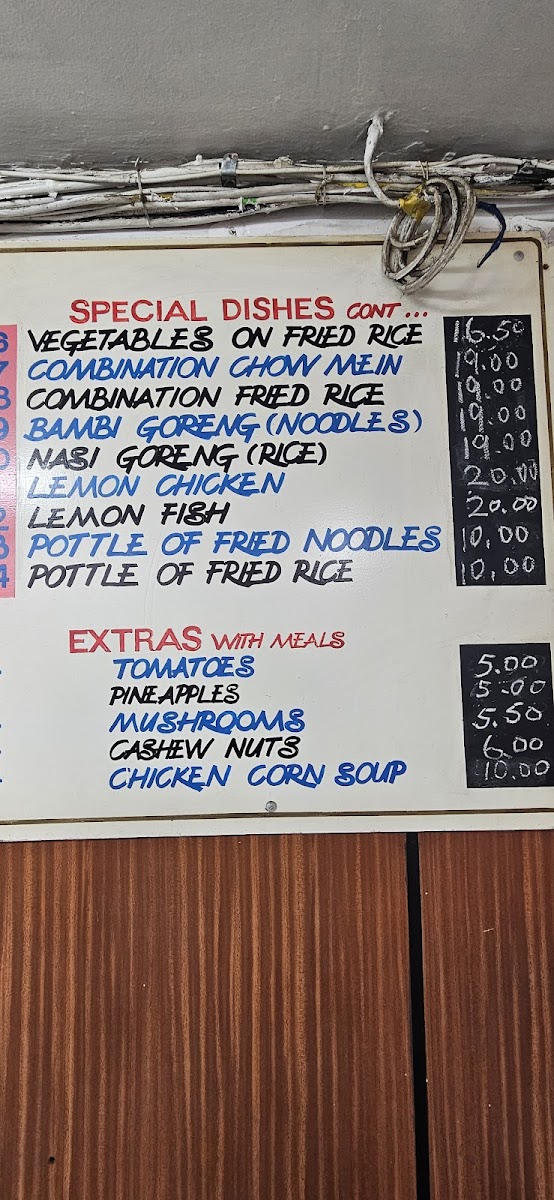 SPECIAL DISHES CONT...
6 VEGETABLES ON FRIED RICE 16.50
7 COMBINATION CHOW MEIN 19.00
8 COMBINATION FRIED RICE 19.00
9 BAMBI GORENG (NOODLES) 19.00
0 NASI GORENG (RICE) 19.00
LEMON CHICKEN 20.00
2 LEMON FISH 20.00
3 POTTLE OF FRIED NOODLES 10.00
4 POTTLE OF FRIED RICE 10.00
EXTRAS WITH MEALS
TOMATOES 5.00
PINEAPPLES 5.00
MUSHROOMS 5.50
CASHEW NUTS 6.00
CHICKEN CORN SOUP 10.00